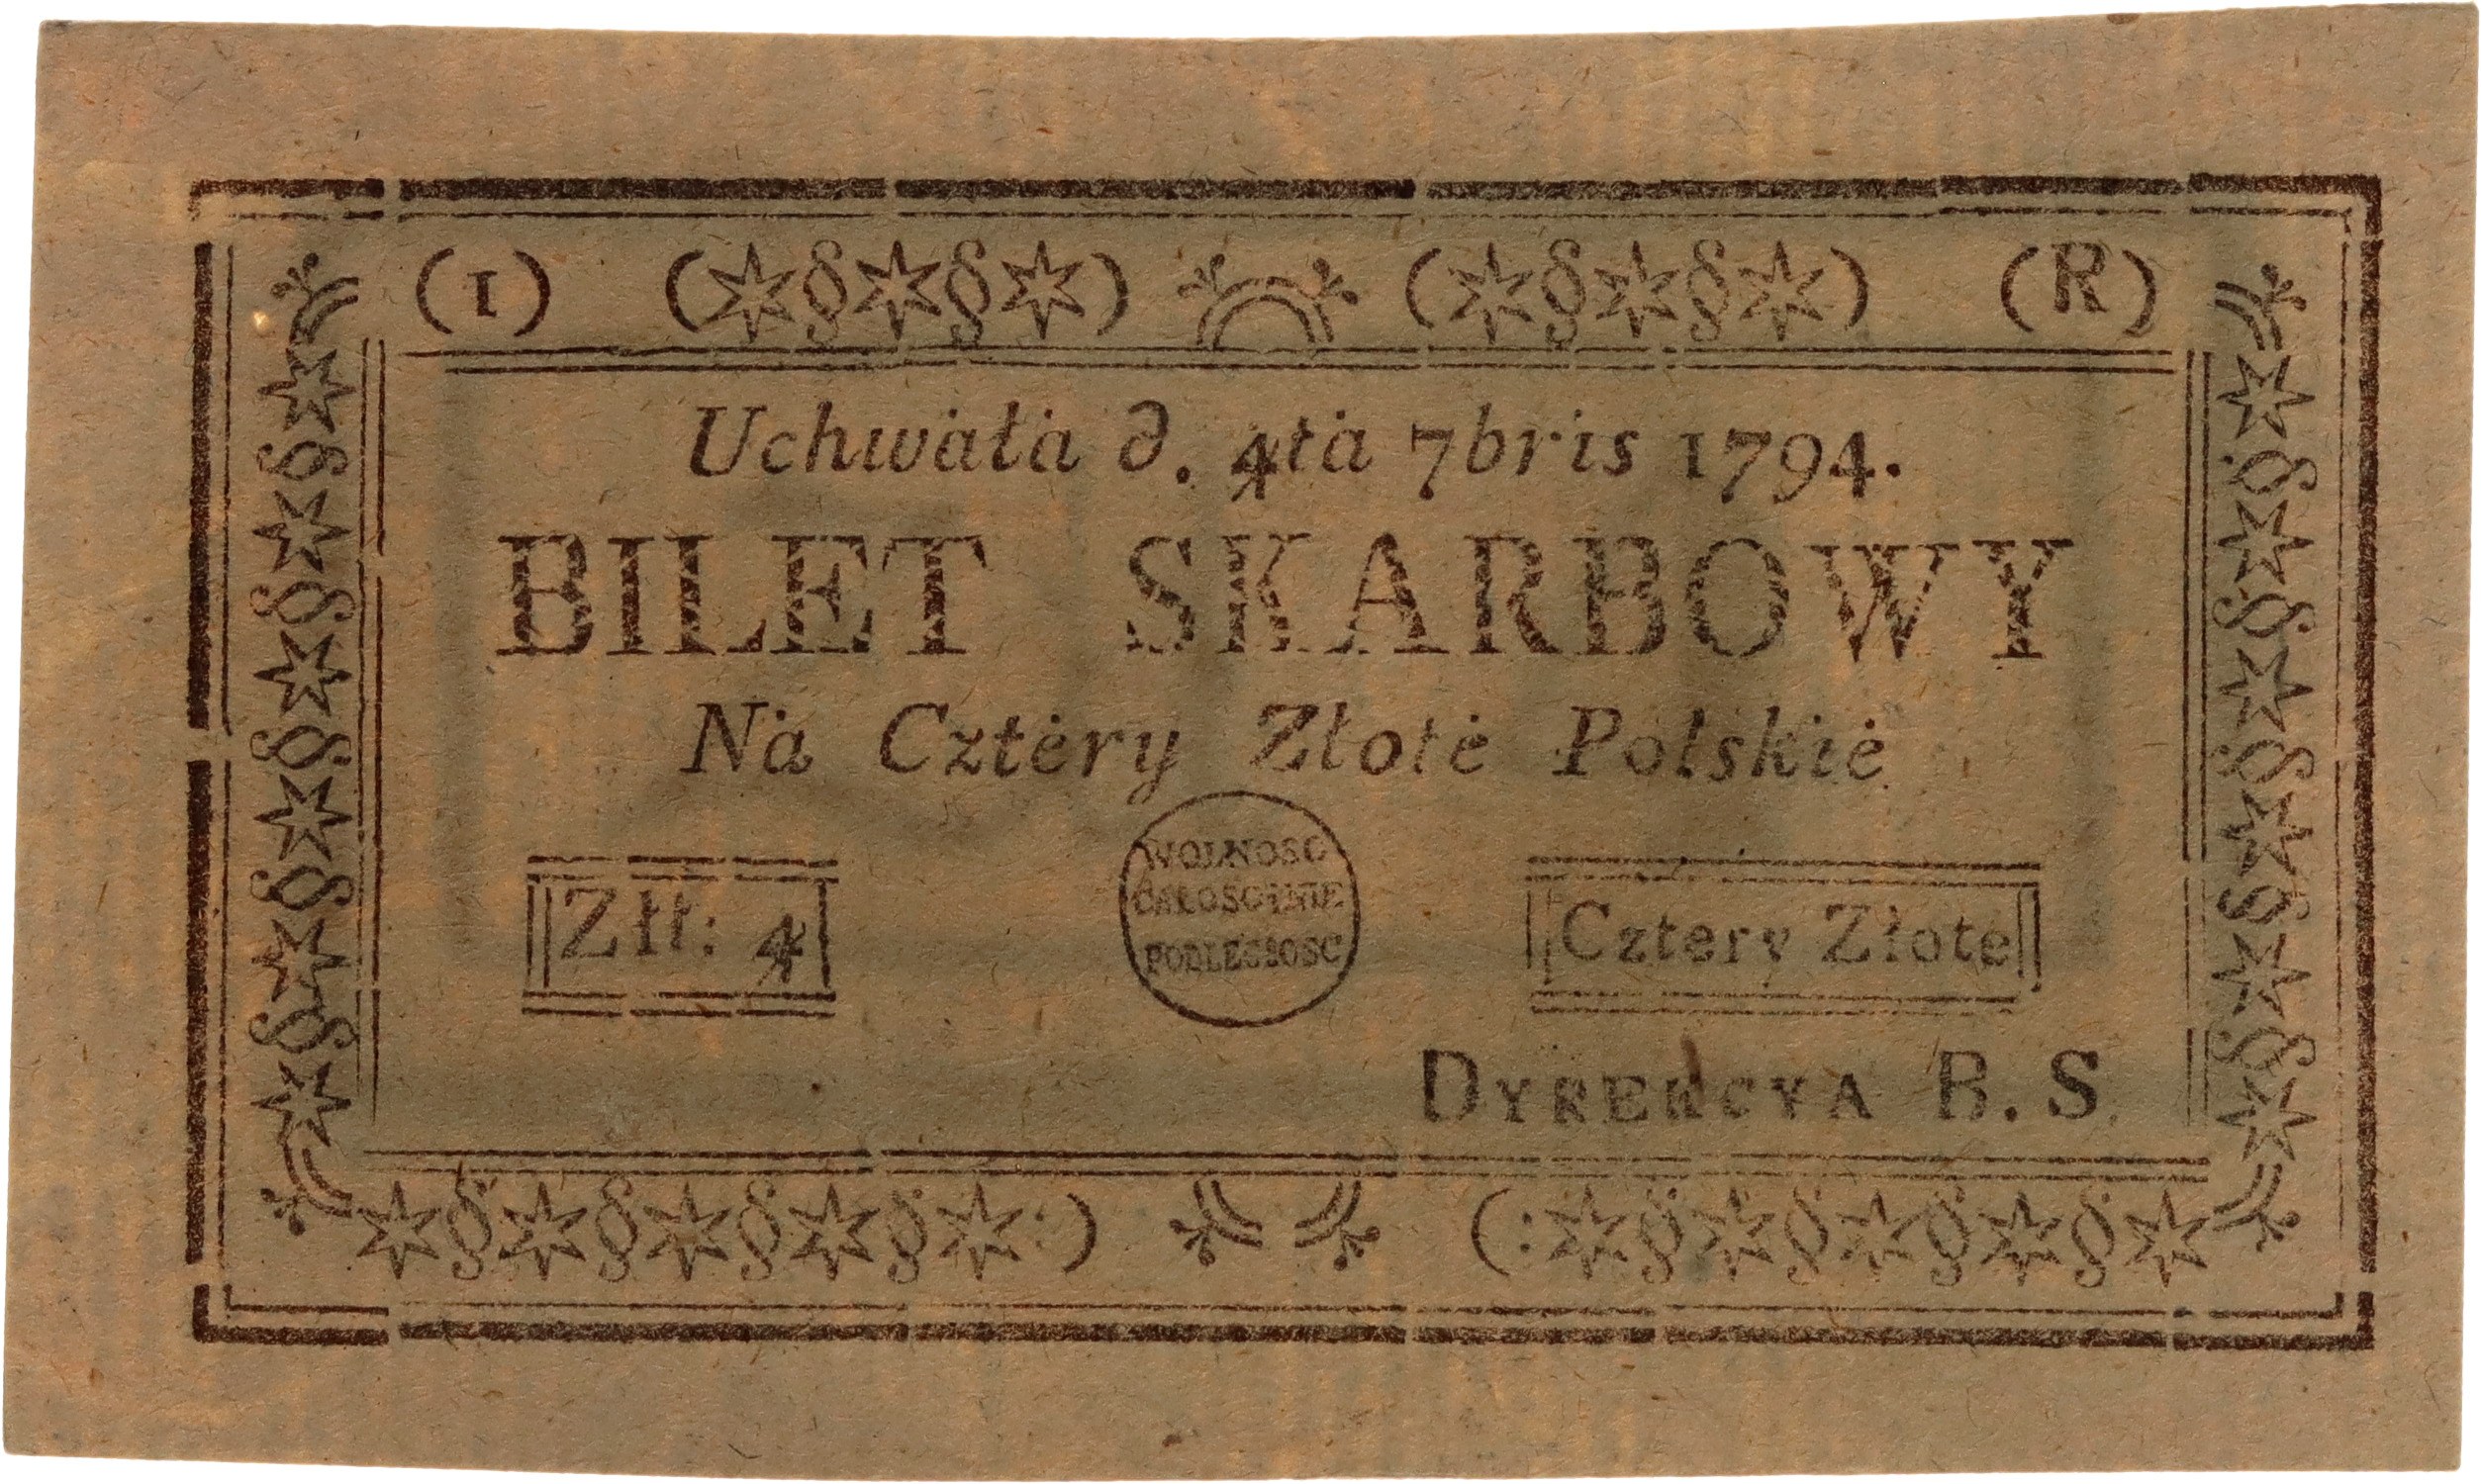 (1) (R)
Uchwȧłȧ d. 4tȧ 7bris 1794.
BILET SKARBOWY
Nȧ Cztėry Złotė Polskiė
Złł: 4
WOLNOSC
CAŁOSC INIE
PODLEGŁOSC
Cztery Złote
DYREKCYA B. S.